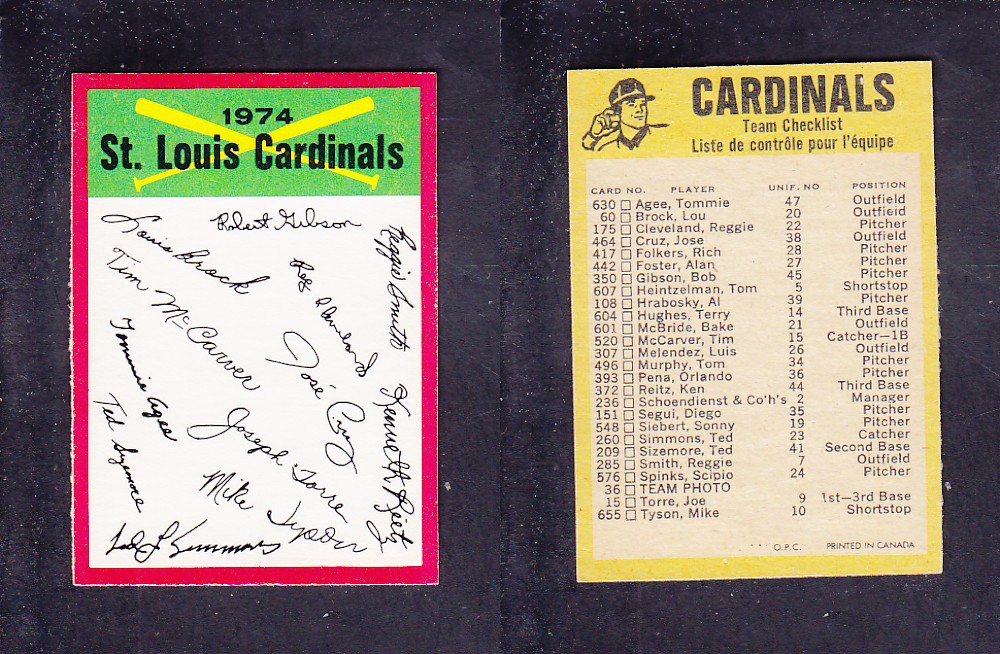 1974
St. Louis Cardinals
Robert Gibson
Louis Brock
Reggie Smith
Tim McCarver
José Cruz
Tommie Agee
Kenneth Reitz
Joseph Torre
Ted Sizemore
Mike Tyson
Ted L Simmons
CARDINALS
Team Checklist
Liste de contrôle pour l'équipe
CARD NO. PLAYER UNIF. NO POSITION
630 Agee, Tommie 47 Outfield
60 Brock, Lou 20 Outfield
175 Cleveland, Reggie 22 Pitcher
464 Cruz, Jose 38 Outfield
417 Folkers, Rich 28 Pitcher
442 Foster, Alan 27 Pitcher
350 Gibson, Bob 45 Pitcher
607 Heintzelman, Tom 5 Shortstop
108 Hrabosky, Al 39 Pitcher
604 Hughes, Terry 14 Third Base
601 McBride, Bake 21 Outfield
520 McCarver, Tim 15 Catcher—1B
307 Melendez, Luis 26 Outfield
496 Murphy, Tom 34 Pitcher
393 Pena, Orlando 36 Pitcher
372 Reitz, Ken 44 Third Base
236 Schoendienst & Co'h's 2 Manager
151 Segui, Diego 35 Pitcher
548 Siebert, Sonny 19 Pitcher
260 Simmons, Ted 23 Catcher
209 Sizemore, Ted 41 Second Base
285 Smith, Reggie 7 Outfield
576 Spinks, Scipio 24 Pitcher
36 TEAM PHOTO
15 Torre, Joe 9 1st—3rd Base
655 Tyson, Mike 10 Shortstop
O.P.C. PRINTED IN CANADA